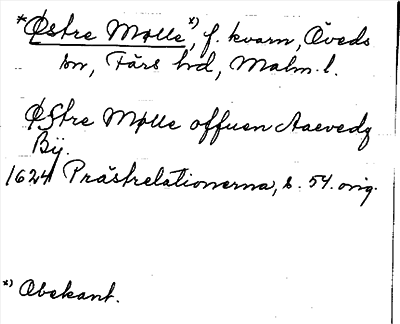 *Østre Mølle*), f. kvarn, Öveds
sn, Färs hd, Malm. l.
Østre Mølle offuen Aaevedz
Bÿ.
1624 Prästrelationerna, s. 54. orig.
*) Obekant.